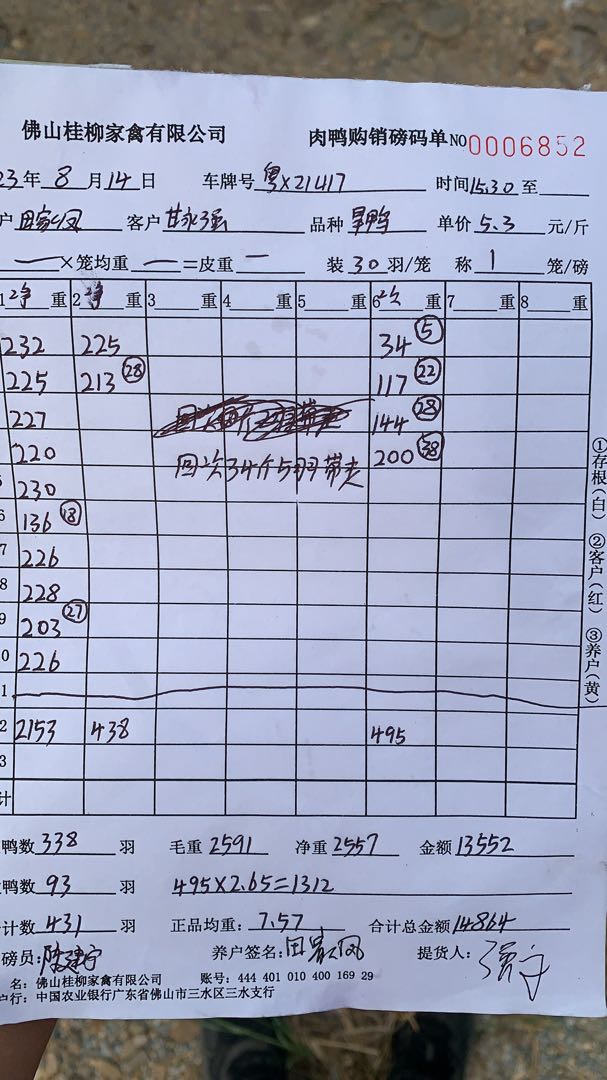 佛山桂柳家禽有限公司 肉鸭购销磅码单 NO 0006852
23年 8 月 14 日 车牌号 粤X21417 时间 15.30 至
户 客户 甘永强 品种 单价 5.3 元/斤
一 ×笼均重 一 =皮重 一 装 30 羽/笼 称 1 笼/磅
1 净 重 2 净 重 3 重 4 重 5 重 6 次 重 7 重 8 重
232 225 34 ⑤
225 213 ㉘ 117 ㉒
227 144 ㉘
220 回次34斤5羽带走 200 ㊳
5 230
6 136 ⑱
7 226
8 228
9 203 ㉗
0 226
1
2 2153 438 495
3
计
鸭数 338 羽 毛重 2591 净重 2557 金额 13552
鸭数 93 羽 495×2.65=1312
计数 431 羽 正品均重: 7.57 合计总金额 14864
磅员: 养户签名: 提货人:
名: 佛山桂柳家禽有限公司 账号: 444 401 010 400 169 29
户行: 中国农业银行广东省佛山市三水区三水支行
①存根(白) ②客户(红) ③养户(黄)